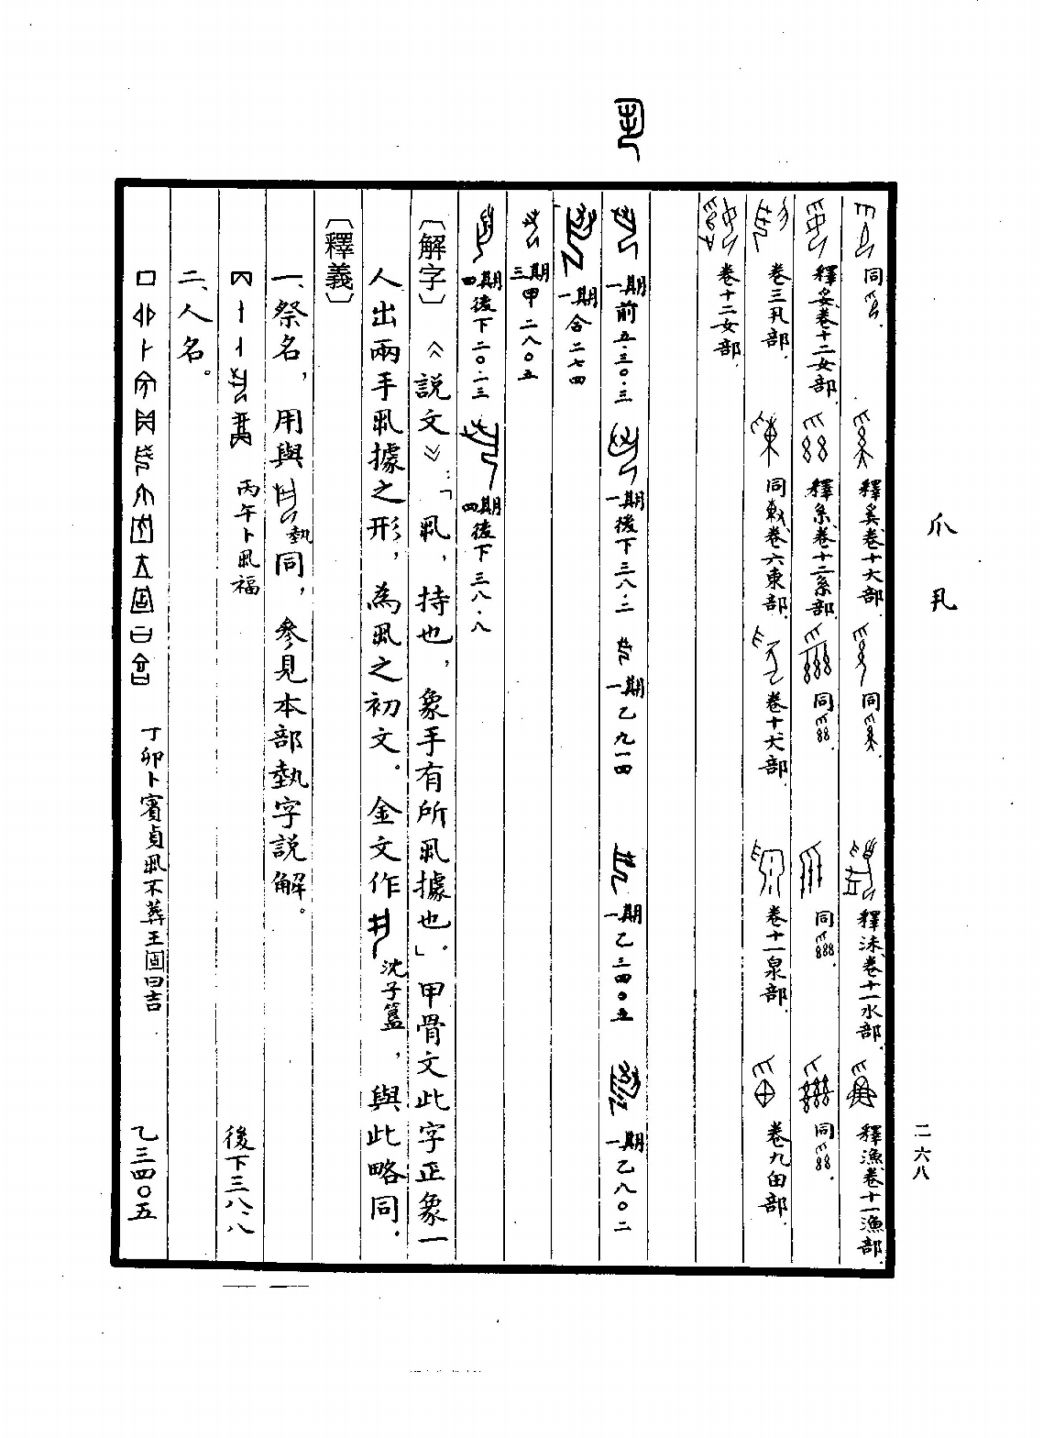 爪 丮
二六八
同
釋奚卷十大部.
同
釋沬卷十一水部.
釋漁卷十一漁部.
釋妥卷十二女部.
釋系卷十二系部.
同
同
同
卷三丮部.
同敕卷六東部.
卷十犬部.
卷十一泉部.
卷九甶部.
卷十二女部.
一期前五.三〇.三
一期後下三八.二
一期乙九一四
一期乙三四〇五
一期乙八〇二
一期合二七四
三期甲二八〇五
四期後下二〇.一三
四期後下三八.八
〔解字〕《説文》:「丮，持也，象手有所丮據也」.甲骨文此字正象一
人出兩手丮據之形，為丮之初文.金文作 沈子簋，與此略同.
〔釋義〕
一、祭名，用與 埶同，參見本部埶字説解。
丙午卜丮福 後下三八.八
二、人名。
丁卯卜賓貞丮不葬王固曰吉 乙三四〇五